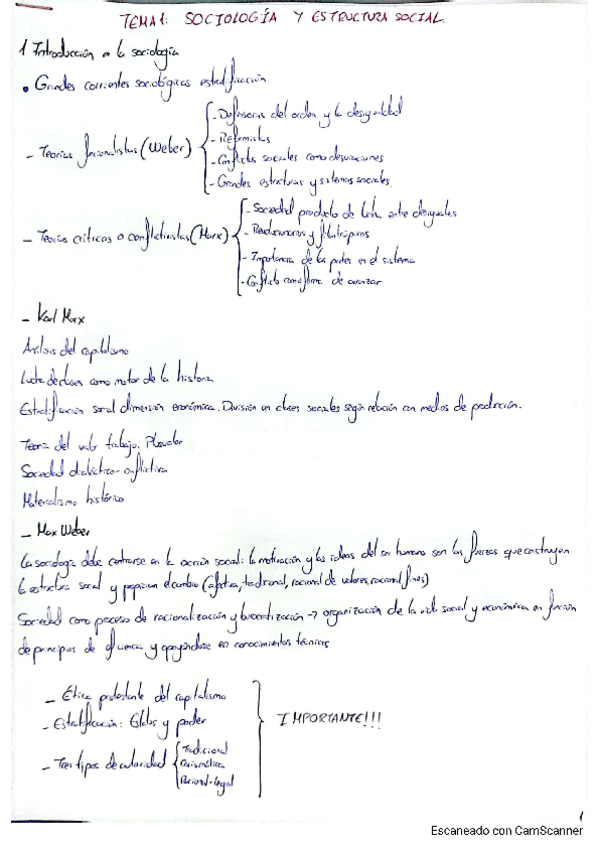 TEMA 1: SOCIOLOGÍA Y ESTRUCTURA SOCIAL.
1 Introducción a la sociología
• Grandes corrientes sociológicas estratificación
- Teorías funcionalistas (Weber)
- Defensoras del orden y la desigualdad
- Reformistas
- Conflictos sociales como desviaciones
- Grandes estructuras y sistemas sociales
- Teorías críticas o conflictivistas (Marx)
- Sociedad producto de lucha entre desiguales
- Revolucionarios y
- Importancia de las partes en el sistema
- Conflicto como forma de avanzar
- Karl Marx
Análisis del capitalismo
Lucha de clases como motor de la historia
Estratificación social dimensión económica. División en clases sociales según relación con medios de producción.
Teoría del valor trabajo. Plusvalor
Sociedad dialéctico-conflictiva
Materialismo histórico
- Max Weber
La sociología debe centrarse en la acción social: la motivación y las ideas del ser humano son las fuerzas que construyen
la estructura social y propician el cambio (afectiva, tradicional, racional de valores, racional fines)
Sociedad como proceso de racionalización y burocratización → organización de la vida social y económica en función
de principios de eficiencia y apoyándose en conocimientos técnicos
- Ética protestante del capitalismo
- Estratificación: Status y poder
- Tres tipos de autoridad
Tradicional
Carismática
Racional-legal
IMPORTANTE!!!
1
Escaneado con CamScanner